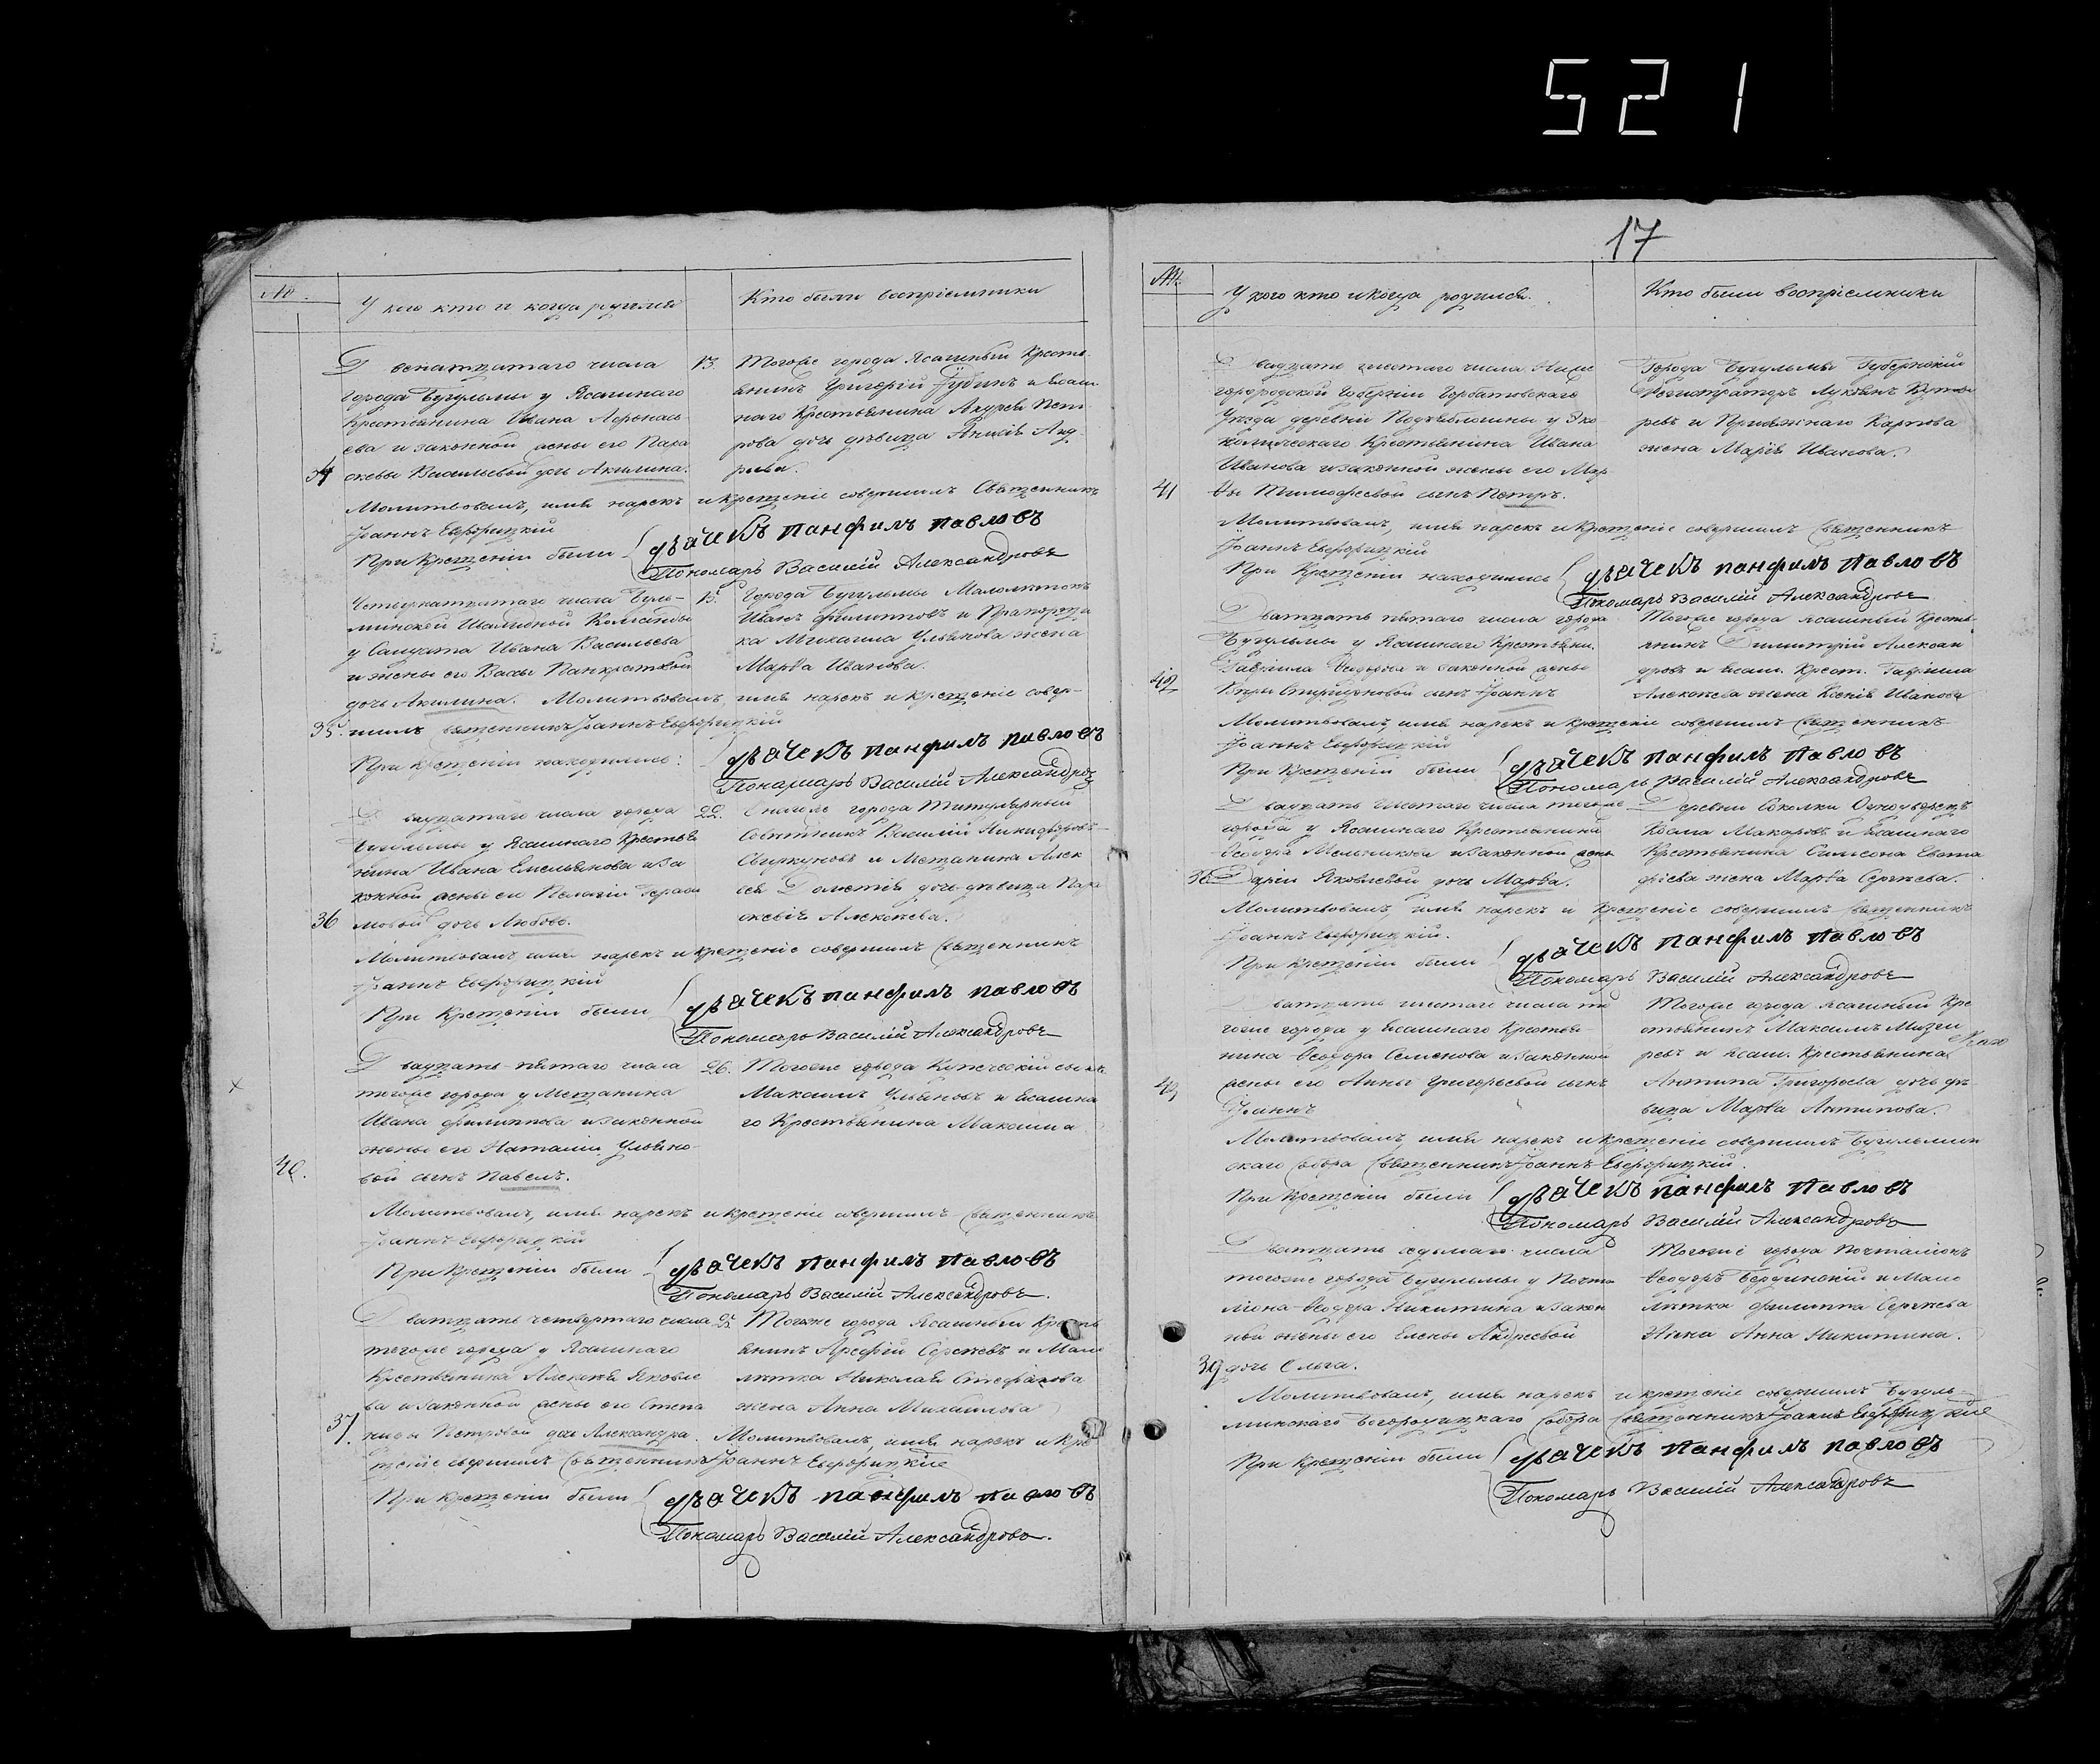 521
17
№
У кого кто и когда родился
Кто были восприемники
Двенатцатаго числа
города Бугульмы у Ясашнаго
Крестьянина Ивана Афонась
ева и законной жены его Пара
34 скевы Васильевой дочь Акилина.
13. Тогоже города Ясашный Кресть-
янинъ Григорій Юдинъ и Ясаш-
наго Крестьянина Андрея Пет-
рова дочь девица Анисія Анд-
реева.
Молитвовалъ, имя нарекъ и крещеніе совершилъ Священникъ
Іоаннъ Евфорицкій
При Крещеніи были
дьячекъ панфилъ павловъ
Пономарь Василій Александровъ
Четырнатцатаго числа Бугуль-
минской Инвалидной Команды
у Салдата Ивана Васильева
и жены его Васы Панкратовой
15. Города Бугульмы Малолетокъ
Иванъ Филипповъ и Прапорщи
ка Михаила Ульянова жена
Марфа Иванова.
дочь Акилина. Молитвовалъ, имя нарекъ и крещеніе совер-
35. шилъ Священникъ Іоаннъ Евфорицкій
При крещеніи находились:
дьячекъ панфилъ павловъ
Пономарь Василій Александровъ
Двадцатаго числа города
Бугульмы у Ясашнаго Крестья
нина Ивана Емельянова и за
конной жены его Пелагіи Гераси
36 мовой дочь Любовь.
22. Онагоже города Титулярный
Советникъ Василій Никифоровъ
Свиркуновъ и Мещанина Алек
сея Дометія дочь девица Пара
скевія Алексеева.
Молитвовалъ имя нарекъ и крещеніе совершилъ Священникъ
Іоаннъ Евфорицкій
При Крещеніи были
дьячекъ панфилъ павловъ
Пономарь Василій Александровъ
Двадцать пятаго числа
тогоже города у Мещанина
Ивана Филиппова и законной
жены его Наталіи Ульяно
40. вой сынъ Павелъ.
26. Тогоже города Купеческій сынъ
Максимъ Ульяновъ и Ясашна
го Крестьянина Максима
Молитвовалъ, имя нарекъ и крещеніе совершилъ Священникъ
Іоаннъ Евфорицкій
При Крещеніи были
дьячекъ панфилъ павловъ
Пономарь Василій Александровъ.
Дватцать четвертаго числа
тогоже города у Ясашнаго
Крестьянина Алексея Яковле
ва и законной жены его Степа
37. ниды Петровой дочь Александра.
25 Тогоже города Ясашный Кресть
янинъ Арефій Сергеевъ и Мало
летка Николая Стефанова
жена Анна Михаилова
Молитвовалъ, имя нарекъ и Кре
щеніе совершилъ Священникъ Іоаннъ Евфорицкій
При крещеніи были
дьячекъ панфилъ павловъ
Пономарь Василій Александровъ.
№
У кого кто и когда родился.
Кто были восприемники
Двадцать шестаго числа Ниже
городской Губерніи Горбатовскаго
Уезда деревни Подъяблошны у Эко
номическаго Крестьянина Ивана
Иванова и законной жены его Мар
41 фы Тимофеевой сынъ Петръ.
Города Бугульмы Губернскій
Регистраторъ Лукьянъ
ревъ и Приезжнаго Карпова
жена Марія Иванова.
Молитвовалъ, имя нарекъ и крещеніе совершилъ Священникъ
Іоаннъ Евфорицкій
При Крещеніи находились
дьячекъ панфилъ павловъ
Пономарь Василій Александровъ
Дватцать пятаго числа города
Бугульмы у Ясашнаго Крестьяни.
Гаврила Федорова и законной жены
42 Спиридоновой сынъ Іоаннъ
Тогоже города Ясашный Кресть-
янинъ Димитрій Алексан
дровъ и Ясаш. Крест. Гаврила
Алексеева жена Ксенія Иванова
Молитвовалъ, имя нарекъ и крещеніе совершилъ Священникъ
Іоаннъ Евфорицкій
При Крещеніи были
дьячекъ панфилъ павловъ
Пономарь Василій Александровъ
Двадцать шестаго числа тогоже
города у Ясашнаго Крестьянина
Феодора Мельникова и законной жены
38. Дарьи Яковлевой дочь Марфа.
Деревни Соколки Однодворецъ
Козма Макаровъ и Ясашнаго
Крестьянина Самсона Евста
фіева жена Марфа Сергеева.
Молитвовалъ, имя нарекъ и крещеніе совершилъ Священникъ
Іоаннъ Евфорицкій.
При крещеніи были
дьячекъ панфилъ павловъ
Пономарь Василій Александровъ
Дватцать шестаго числа то
гоже города у Ясашнаго Крестья-
нина Феодора Семенова и законной
43 жены его Анны Григорьевой сынъ
Іоаннъ
Тогоже города Ясашный Кре
стьянинъ Максимъ
ревъ и Ясаш. Крестьянина
Антипа Григорьева дочь де-
вица Марфа Антипова.
Молитвовалъ, имя нарекъ и крещеніе совершилъ Бугульмин
скаго Собора Священникъ Іоаннъ Евфорицкій.
При Крещеніи были
дьячекъ панфилъ павловъ
Пономарь Василій Александровъ
Дватцать седьмаго числа
тогоже города Бугульмы у Почта
ліона Феодора Никитина и закон
ной жены его Елены Андреевой
39 дочь Ольга.
Тогоже города Почталіонъ
Феодоръ Бердинскій и Мало
летка Филиппа Сергеева
Жена Анна Никитина.
Молитвовалъ, имя нарекъ и крещеніе совершилъ Бугуль-
минскаго Богородицкаго Собора Священникъ Іоаннъ Евфорицкій
При крещеніи были
дьячекъ панфилъ павловъ
Пономарь Василій Александровъ